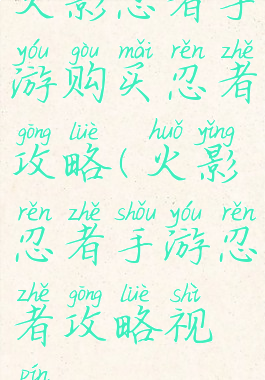 火影忍者手
yóu gòu mǎi rěn zhě
游购买忍者
gōng lüè huǒ yǐng
攻略(火影
rěn zhě shǒu yóu rěn
忍者手游忍
zhě gōng lüè shì
者攻略视
pín